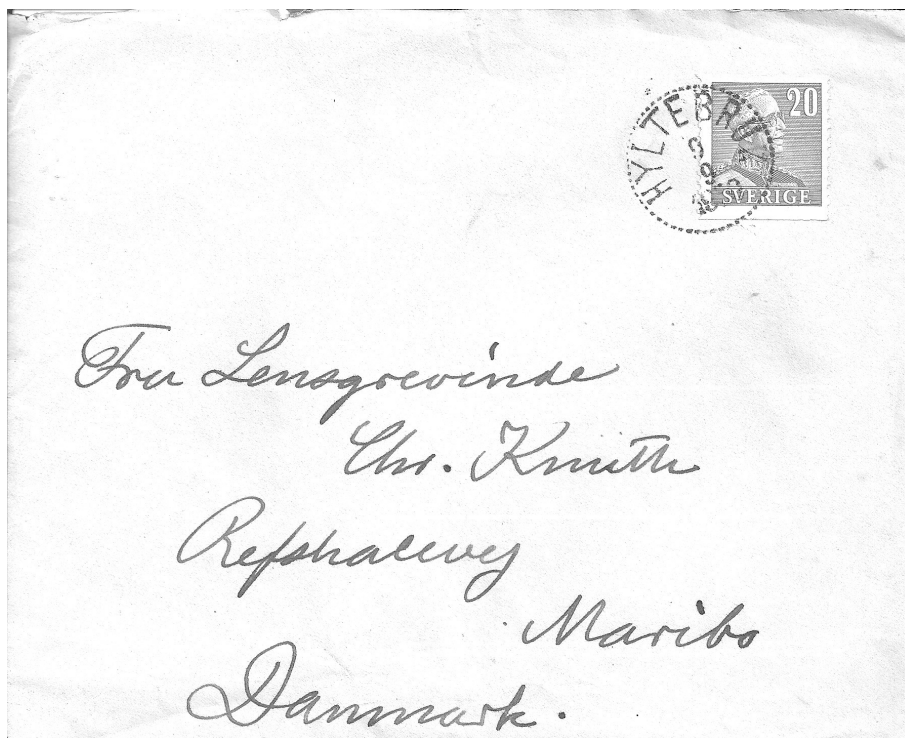 20
HYLTEBRU
SVERIGE
Fru Lensgrevinde
Chr. Knuth
Refshalevej
Maribo
Danmark.